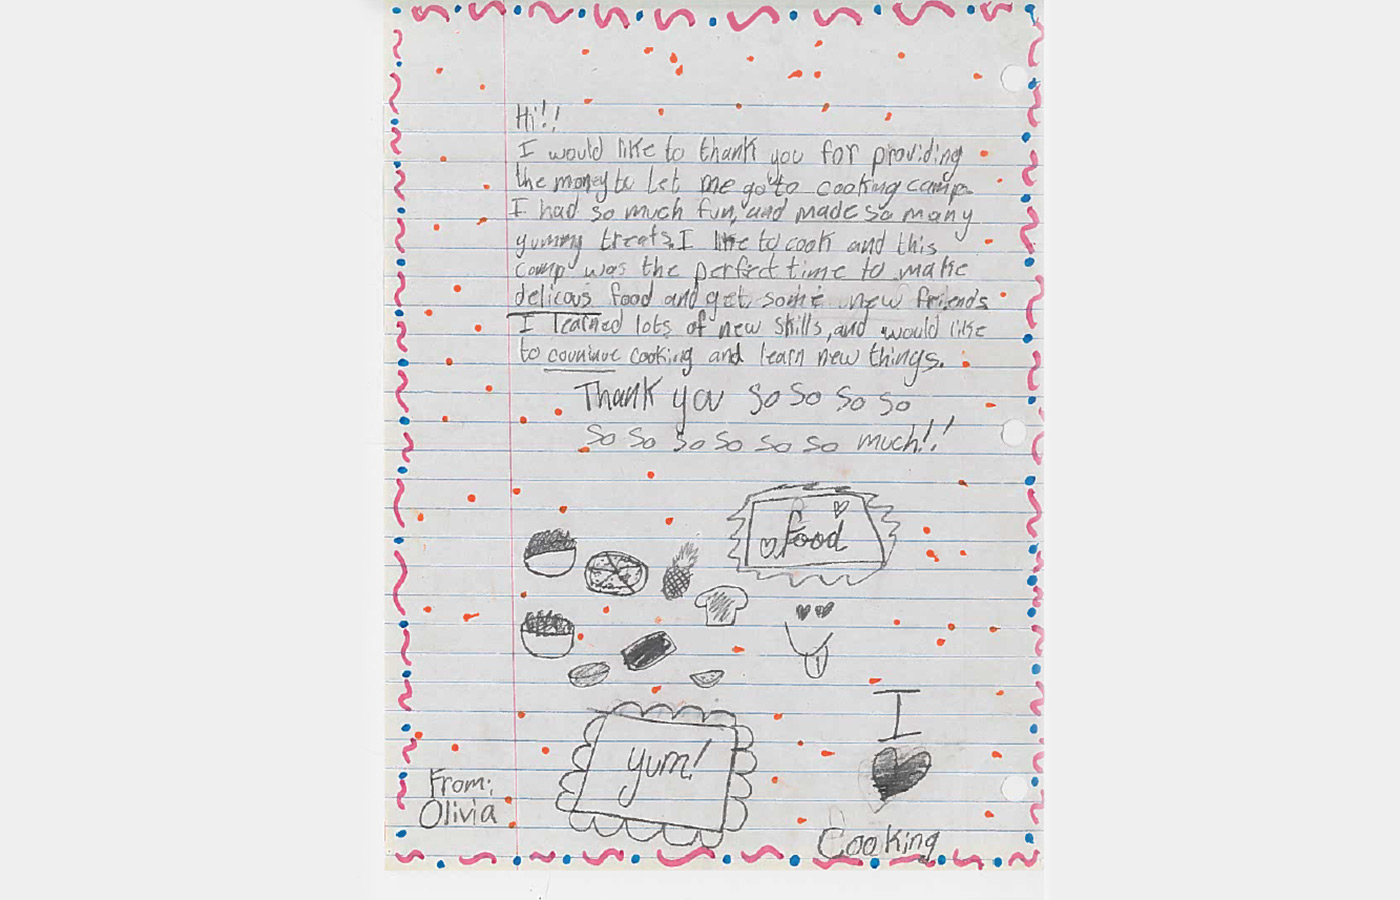 Hi!!
I would like to thank you for providing
the money to let me go to cooking camp.
I had so much fun, and made so many
yummy treats. I like to cook and this
camp was the perfect time to make
delicous food and get some new friends
I learned lots of new skills, and would like
to countinue cooking and learn new things.
Thank you so so so so
so so so so so so much!!
food
yum!
I
Cooking
From:
Olivia